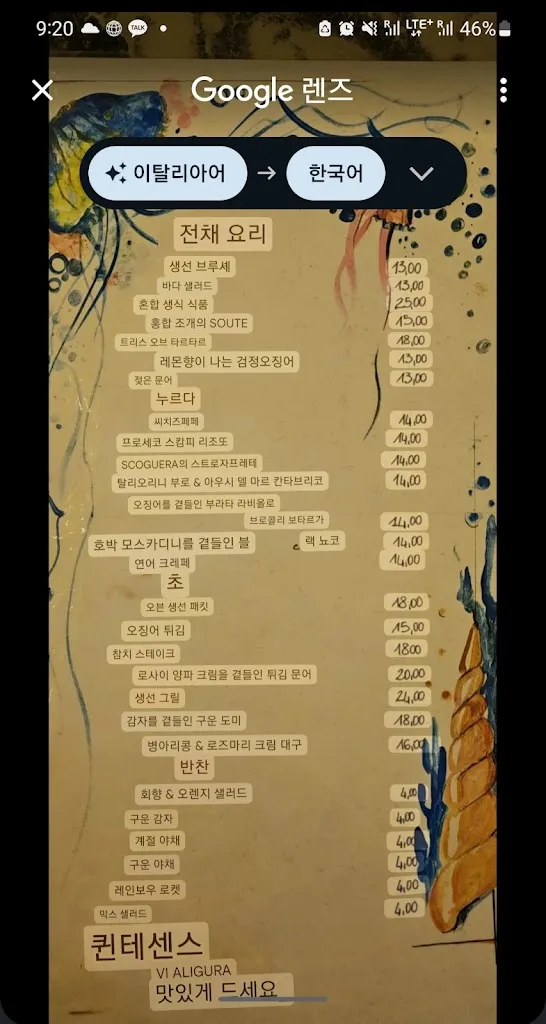 9:20 TALK R LTE+ R 46%
Google 렌즈
이탈리아어 → 한국어
전채 요리
생선 브루셰 13,00
바다 샐러드 13,00
혼합 생식 식품 25,00
홍합 조개의 SOUTE 15,00
트리스 오브 타르타르 18,00
레몬향이 나는 검정오징어 13,00
젖은 문어 13,00
누르다
씨치즈페페 14,00
프로세코 스캄피 리조또 14,00
SCOGUERA의 스트로자프레테 14,00
탈리오리니 부로 & 아우시 델 마르 칸타브리코 14,00
오징어를 곁들인 부라타 라비올로
브로콜리 보타르가 14,00
호박 모스카디니를 곁들인 블 랙 뇨코 14,00
연어 크레페 14,00
초
오븐 생선 패킷 18,00
오징어 튀김 15,00
참치 스테이크 1800
로사이 양파 크림을 곁들인 튀김 문어 20,00
생선 그릴 24,00
감자를 곁들인 구운 도미 18,00
병아리콩 & 로즈마리 크림 대구 16,00
반찬
회향 & 오렌지 샐러드 4,00
구운 감자 4,00
계절 야채 4,00
구운 야채 4,00
레인보우 로켓 4,00
믹스 샐러드 4,00
퀸테센스
VI ALIGURA
맛있게 드세요